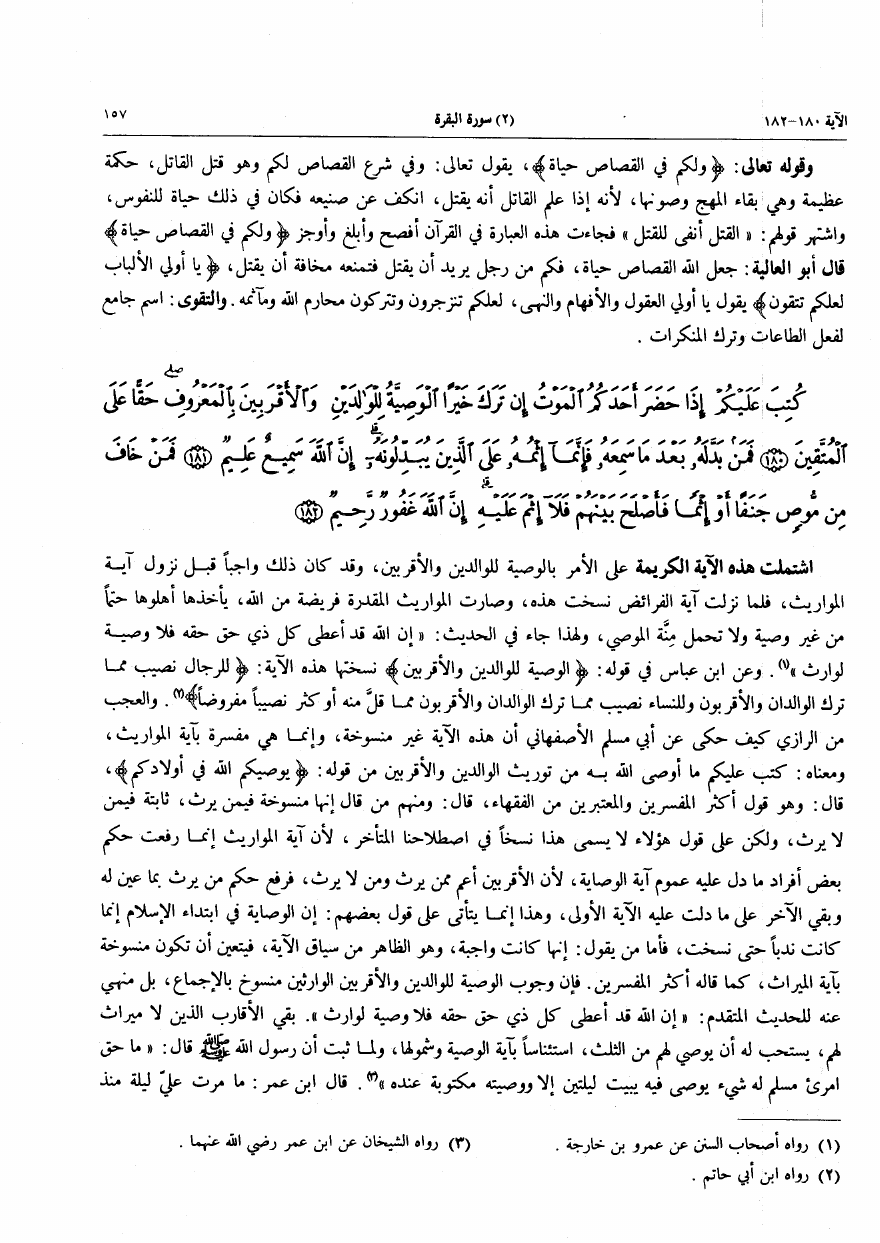 الآية ١٨٠-١٨٢ (٢) سورة البقرة ١٥٧
وقوله تعالى: ﴿ولكم في القصاص حياة﴾، يقول تعالى: وفي شرع القصاص لكم وهو قتل القاتل، حكمة
عظيمة وهي بقاء المهج وصونها، لأنه إذا علم القاتل أنه يقتل، انكف عن صنيعه فكان في ذلك حياة للنفوس،
واشتهر قولهم: « القتل أنفى للقتل » فجاءت هذه العبارة في القرآن أفصح وأبلغ وأوجز ﴿ولكم في القصاص حياة﴾
قال أبو العالية: جعل الله القصاص حياة، فكم من رجل يريد أن يقتل فتمنعه مخافة أن يقتل، ﴿يا أولي الألباب
لعلكم تتقون﴾ يقول يا أولي العقول والأفهام والنهى، لعلكم تنزجرون وتتركون محارم الله ومآثمه. والتقوى: اسم جامع
لفعل الطاعات وترك المنكرات .
كُتِبَ عَلَيْكُمْ إِذَا حَضَرَ أَحَدَكُمُ ٱلْمَوْتُ إِن تَرَكَ خَيْرًا ٱلْوَصِيَّةُ لِلْوَٰلِدَيْنِ وَٱلْأَقْرَبِينَ بِٱلْمَعْرُوفِ ۖ حَقًّا عَلَى
ٱلْمُتَّقِينَ ﴿١٨٠﴾ فَمَنۢ بَدَّلَهُۥ بَعْدَ مَا سَمِعَهُۥ فَإِنَّمَآ إِثْمُهُۥ عَلَى ٱلَّذِينَ يُبَدِّلُونَهُۥٓ ۚ إِنَّ ٱللَّهَ سَمِيعٌ عَلِيمٌ ﴿١٨١﴾ فَمَنْ خَافَ
مِن مُّوصٍ جَنَفًا أَوْ إِثْمًا فَأَصْلَحَ بَيْنَهُمْ فَلَآ إِثْمَ عَلَيْهِ ۚ إِنَّ ٱللَّهَ غَفُورٌ رَّحِيمٌ ﴿١٨٢﴾
اشتملت هذه الآية الكريمة على الأمر بالوصية للوالدين والأقربين، وقد كان ذلك واجباً قبل نزول آية
المواريث، فلما نزلت آية الفرائض نسخت هذه، وصارت المواريث المقدرة فريضة من الله، يأخذها أهلوها حتماً
من غير وصية ولا تحمل مِنَّة الموصي، ولهذا جاء في الحديث: « إن الله قد أعطى كل ذي حق حقه فلا وصية
لوارث »(١). وعن ابن عباس في قوله: ﴿الوصية للوالدين والأقربين﴾ نسختها هذه الآية: ﴿للرجال نصيب مما
ترك الوالدان والأقربون وللنساء نصيب مما ترك الوالدان والأقربون مما قلَّ منه أو كثر نصيباً مفروضاً﴾(٢). والعجب
من الرازي كيف حكى عن أبي مسلم الأصفهاني أن هذه الآية غير منسوخة، وإنما هي مفسرة بآية المواريث،
ومعناه: كتب عليكم ما أوصى الله به من توريث الوالدين والأقربين من قوله: ﴿يوصيكم الله في أولادكم﴾،
قال: وهو قول أكثر المفسرين والمعتبرين من الفقهاء، قال: ومنهم من قال إنها منسوخة فيمن يرث، ثابتة فيمن
لا يرث، ولكن على قول هؤلاء لا يسمى هذا نسخاً في اصطلاحنا المتأخر، لأن آية المواريث إنما رفعت حكم
بعض أفراد ما دل عليه عموم آية الوصاية، لأن الأقربين أعم ممن يرث ومن لا يرث، فرفع حكم من يرث بما عين له
وبقي الآخر على ما دلت عليه الآية الأولى، وهذا إنما يتأتى على قول بعضهم: إن الوصاية في ابتداء الإسلام إنما
كانت ندباً حتى نسخت، فأما من يقول: إنها كانت واجبة، وهو الظاهر من سياق الآية، فيتعين أن تكون منسوخة
بآية الميراث، كما قاله أكثر المفسرين. فإن وجوب الوصية للوالدين والأقربين الوارثين منسوخ بالإجماع، بل منهي
عنه للحديث المتقدم: « إن الله قد أعطى كل ذي حق حقه فلا وصية لوارث ». بقي الأقارب الذين لا ميراث
لهم، يستحب له أن يوصي لهم من الثلث، استئناساً بآية الوصية وشمولها، ولما ثبت أن رسول الله ﷺ قال: « ما حق
امرئ مسلم له شيء يوصى فيه يبيت ليلتين إلا ووصيته مكتوبة عنده »(٣). قال ابن عمر: ما مرت عليّ ليلة منذ
(١) رواه أصحاب السنن عن عمرو بن خارجة . (٣) رواه الشيخان عن ابن عمر رضي الله عنهما .
(٢) رواه ابن أبي حاتم .